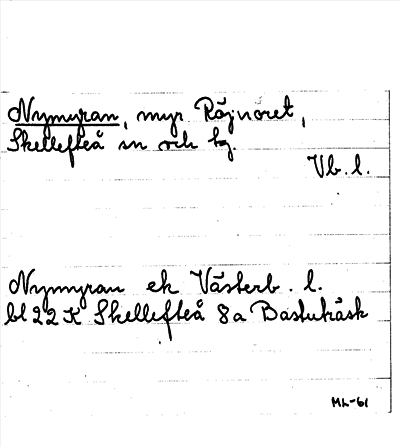 Nymyran, myr Röjnoret,
Skellefteå sn och hg.
Vb. l.
Nymyran ek Västerb. l.
bl 22 K Skellefteå 8a Bastuträsk
ML-61